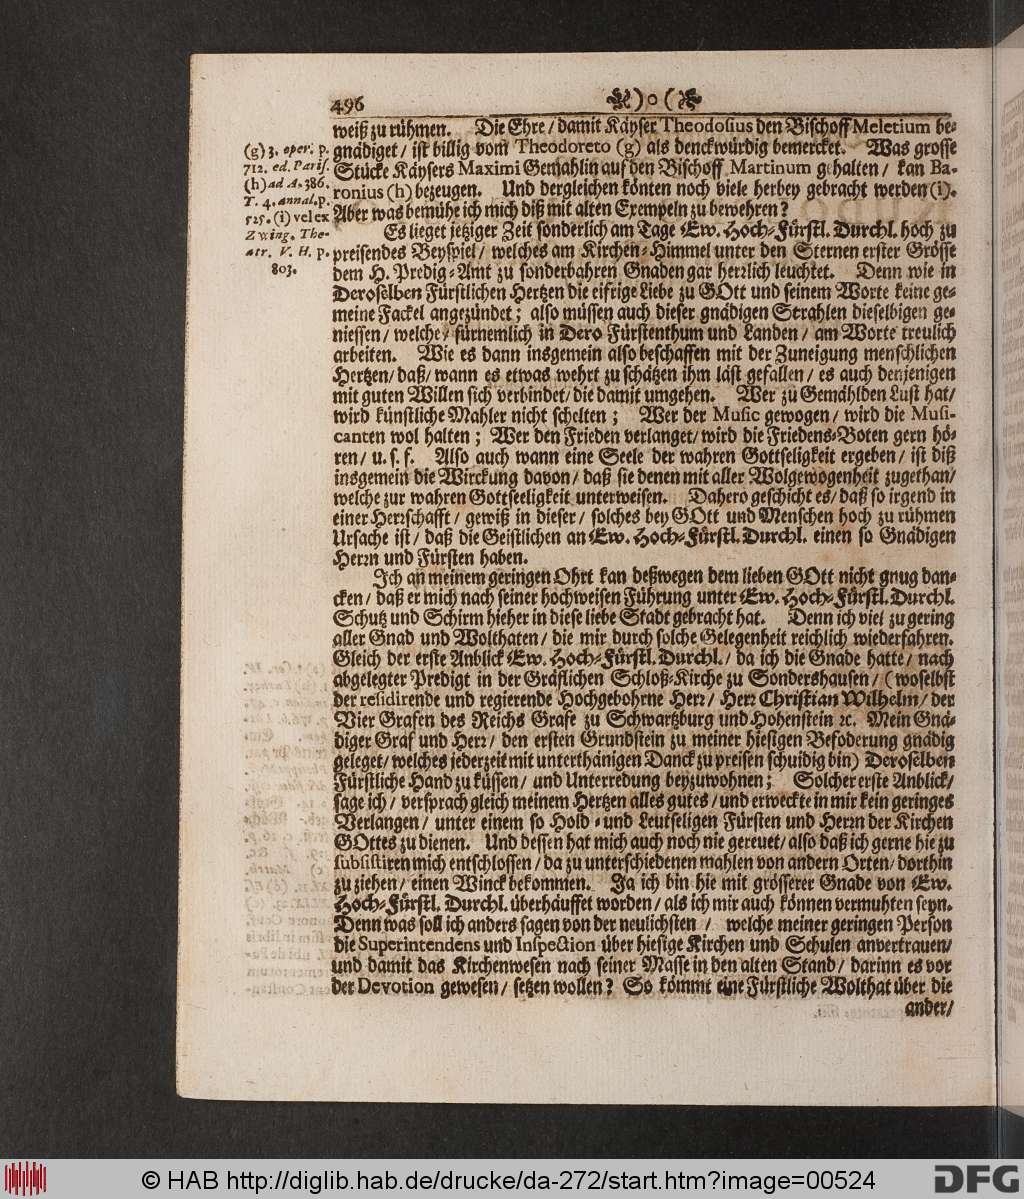 496 )o(
weiß zu rühmen. Die Ehre / damit Käyser Theodosius den Bischoff Meletium be-
gnädiget / ist billig vom Theodoreto (g) als denckwürdig bemercket. Was grosse
Stücke Käysers Maximi Gemahlin auf den Bischoff Martinum gehalten / kan Ba-
ronius (h) bezeugen. Und dergleichen könten noch viele herbey gebracht werden (i).
Aber was bemühe ich mich diß mit alten Exempeln zu bewehren?
(g) 3. oper. p.
712. ed. Paris.
(h) ad A. 386.
T. 4. annal. p.
525. (i) vel ex
Zwing. The-
atr. V. H. p.
803.
Es lieget jetziger Zeit sonderlich am Tage Ew. Hoch-Fürstl. Durchl. hoch zu
preisendes Beyspiel / welches am Kirchen-Himmel unter den Sternen erster Grösse
dem H. Predig-Amt zu sonderbahren Gnaden gar herrlich leuchtet. Denn wie in
Deroselben Fürstlichen Hertzen die eifrige Liebe zu GOtt und seinem Worte keine ge-
meine Fackel angezündet; also müssen auch dieser gnädigen Strahlen dieselbigen ge-
niessen / welche / fürnemlich in Dero Fürstenthum und Landen / am Worte treulich
arbeiten. Wie es dann insgemein also beschaffen mit der Zuneigung menschlichen
Hertzen / daß / wann es etwas wehrt zu schätzen ihm läst gefallen / es auch denjenigen
mit guten Willen sich verbindet / die damit umgehen. Wer zu Gemählden Lust hat /
wird künstliche Mahler nicht schelten; Wer der Music gewogen / wird die Musi-
canten wol halten; Wer den Frieden verlanget / wird die Friedens-Boten gern hö-
ren / u. s. f. Also auch wann eine Seele der wahren Gottseligkeit ergeben / ist diß
insgemein die Wirckung davon / daß sie denen mit aller Wolgewogenheit zugethan /
welche zur wahren Gottseeligkeit unterweisen. Dahero geschicht es / daß so irgend in
einer Herrschafft / gewiß in dieser / solches bey GOtt und Menschen hoch zu rühmen
Ursache ist / daß die Geistlichen an Ew. Hoch-Fürstl. Durchl. einen so Gnädigen
Herrn und Fürsten haben.
Ich an meinem geringen Ohrt kan deßwegen dem lieben GOtt nicht gnug dan-
cken / daß er mich nach seiner hochweisen Führung unter Ew. Hoch-Fürstl. Durchl.
Schutz und Schirm hieher in diese liebe Stadt gebracht hat. Denn ich viel zu gering
aller Gnad und Wolthaten / die mir durch solche Gelegenheit reichlich wiederfahren.
Gleich der erste Anblick Ew. Hoch-Fürstl. Durchl. / da ich die Gnade hatte / nach
abgelegter Predigt in der Gräflichen Schloß-Kirche zu Sondershausen / (woselbst
der residirende und regierende Hochgebohrne Herr / Herr Christian Wilhelm / der
Vier Grafen des Reichs Grafe zu Schwartzburg und Hohenstein ꝛc. Mein Gnä-
diger Graf und Herr / den ersten Grundstein zu meiner hiesigen Befoderung gnädig
geleget / welches jederzeit mit unterthänigen Danck zu preisen schuldig bin) Deroselben
Fürstliche Hand zu küssen / und Unterredung beyzuwohnen; Solcher erste Anblick /
sage ich / versprach gleich meinem Hertzen alles gutes / und erweckte in mir kein geringes
Verlangen / unter einem so Hold- und Leutseligen Fürsten und Herrn der Kirchen
GOttes zu dienen. Und dessen hat mich auch noch nie gereuet / also daß ich gerne hie zu
subsistiren mich entschlossen / da zu unterschiedenen mahlen von andern Orten / dorthin
zu ziehen / einen Winck bekommen. Ja ich bin hie mit grösserer Gnade von Ew.
Hoch-Fürstl. Durchl. überhäuffet worden / als ich mir auch können vermuhten seyn.
Denn was soll ich anders sagen von der neulichsten / welche meiner geringen Person
die Superintendens und Inspection über hiesige Kirchen und Schulen anvertrauen /
und damit das Kirchenwesen nach seiner Masse in den alten Stand / darinn es vor
der Devotion gewesen / setzen wollen? So kömmt eine Fürstliche Wolthat über die
ander /
© HAB http://diglib.hab.de/drucke/da-272/start.htm?image=00524
DFG